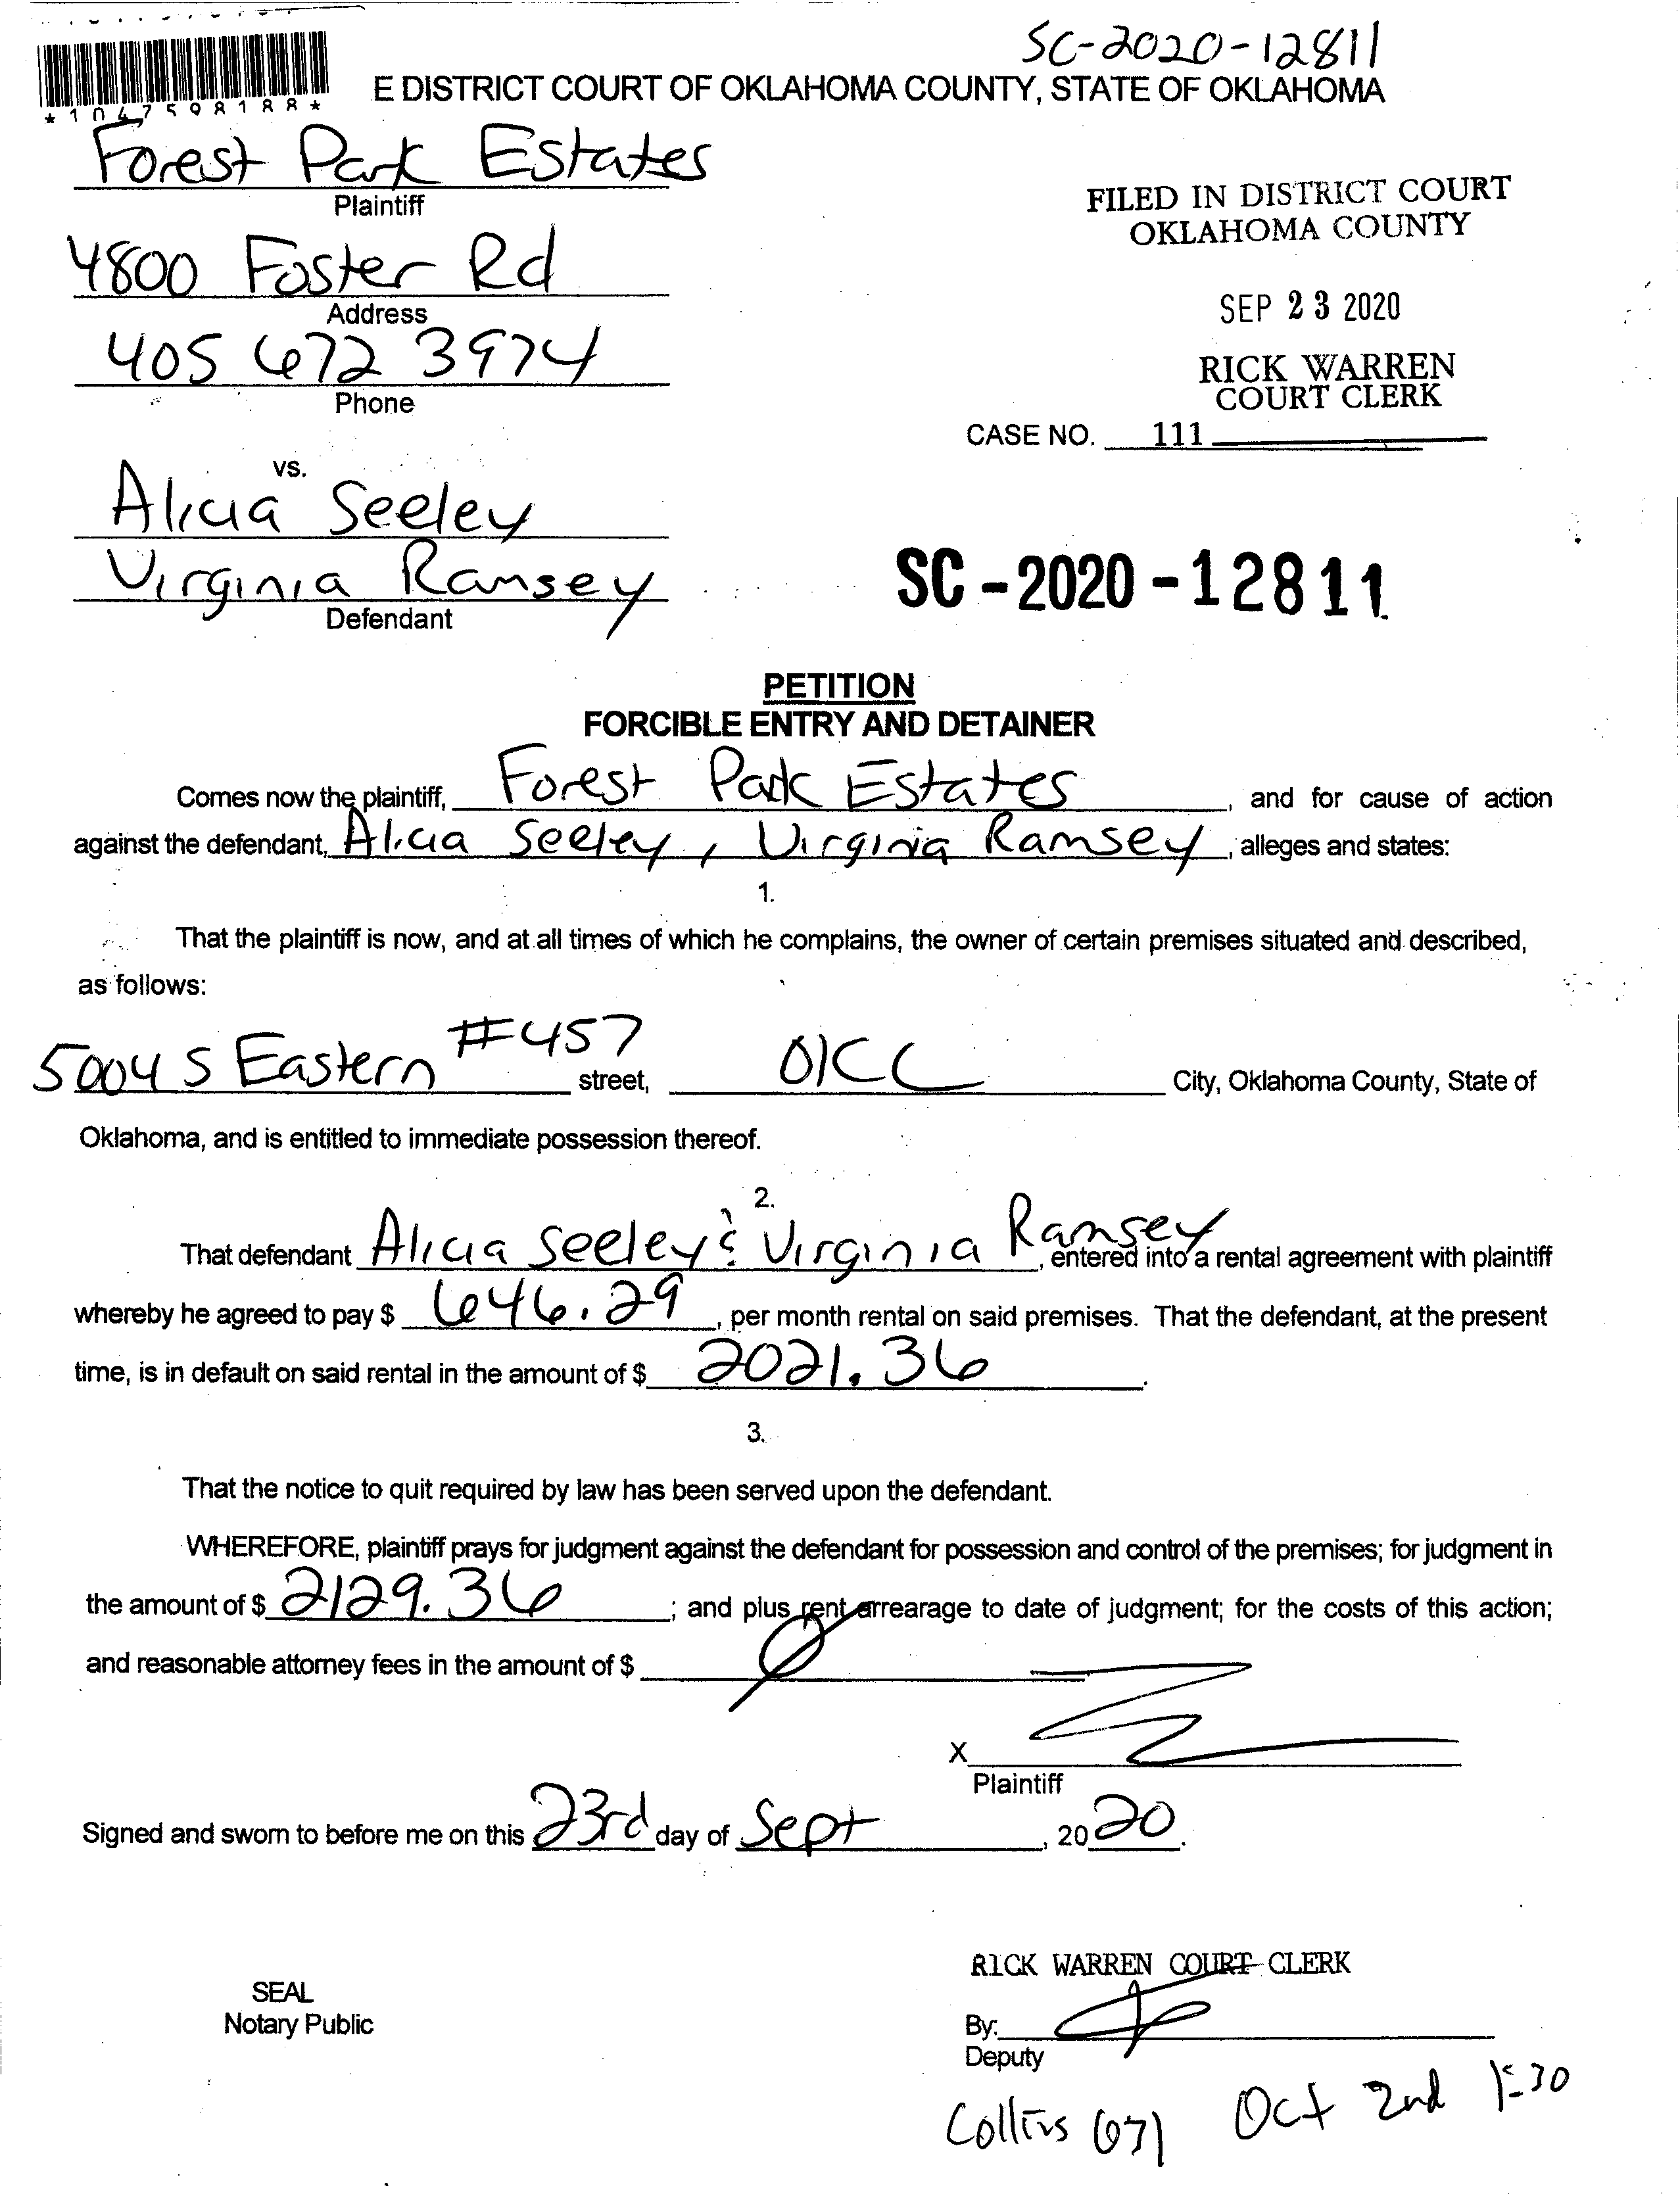 SC-2020-12811
*1047598188*
E DISTRICT COURT OF OKLAHOMA COUNTY, STATE OF OKLAHOMA
Forest Park Estates
Plaintiff
FILED IN DISTRICT COURT
OKLAHOMA COUNTY
4800 Foster Rd
Address
SEP 23 2020
405 672 3974
Phone
RICK WARREN
COURT CLERK
CASE NO. 111
vs.
Alicia Seeley
Virginia Ramsey
Defendant
SC-2020-12811
PETITION
FORCIBLE ENTRY AND DETAINER
Comes now the plaintiff, Forest Park Estates, and for cause of action
against the defendant, Alicia Seeley, Virginia Ramsey, alleges and states:
1.
That the plaintiff is now, and at all times of which he complains, the owner of certain premises situated and described,
as follows:
5004 S Eastern #457 street, OKC City, Oklahoma County, State of
Oklahoma, and is entitled to immediate possession thereof.
2.
That defendant Alicia Seeley & Virginia Ramsey, entered into a rental agreement with plaintiff
whereby he agreed to pay $ 646.29, per month rental on said premises. That the defendant, at the present
time, is in default on said rental in the amount of $ 2021.36.
3.
That the notice to quit required by law has been served upon the defendant.
WHEREFORE, plaintiff prays for judgment against the defendant for possession and control of the premises; for judgment in
the amount of $ 2129.36; and plus rent arrearage to date of judgment; for the costs of this action;
and reasonable attorney fees in the amount of $ Ø
X
Plaintiff
Signed and sworn to before me on this 23rd day of Sept, 2020.
RICK WARREN COURT CLERK
SEAL
Notary Public
By:
Deputy
Collins (07) Oct 2nd 1:30